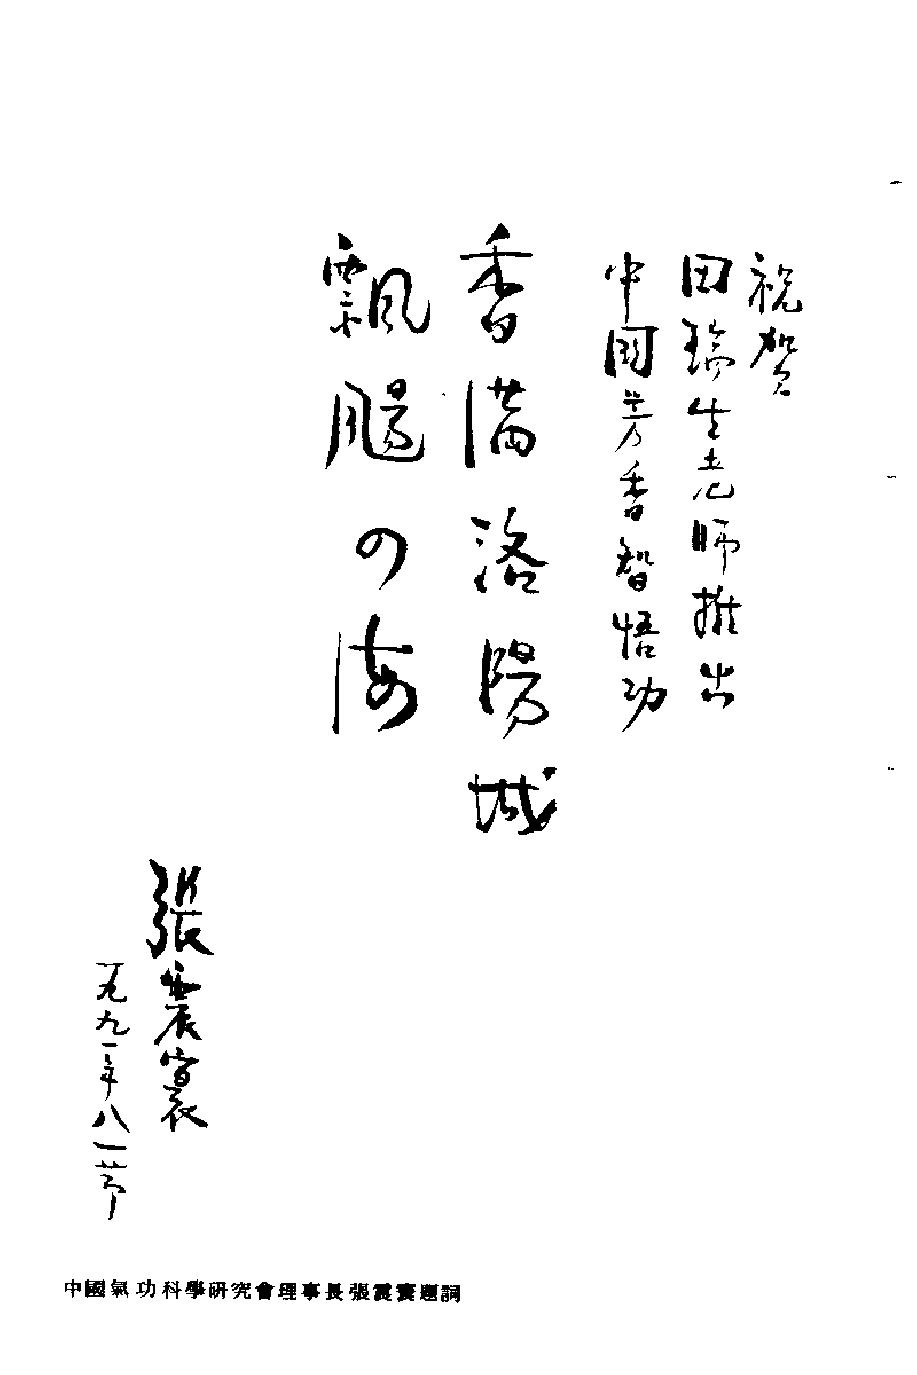 祝賀
田瑞生老师推出
中国芳香智悟功
香满洛陽城
飄颺四海
張震寰
一九九一年八一节
中國氣功科學研究會理事長張震寰題詞